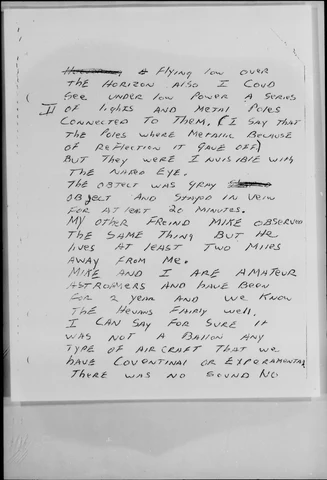 & Flying low over
the Horizon Also I coud
see under low Power A series
II of lights And Metal Poles
connected to Them. (I say that
the Poles where Metallic Because
of reflection it gave off)
But they were Invisible with
the Naked Eye.
The object was gray
object And stayed in veiw
for At least 20 minutes.
My other freind Mike observed
the same thing But he
lives At least two Miles
away from Me.
Mike and I are Amateur
Astromers and have been
for 2 year and we know
the Hevans Fairly well.
I can say for sure it
was not a Ballon any
type of aircraft that we
have coventinal or Experamental
There was no sound no